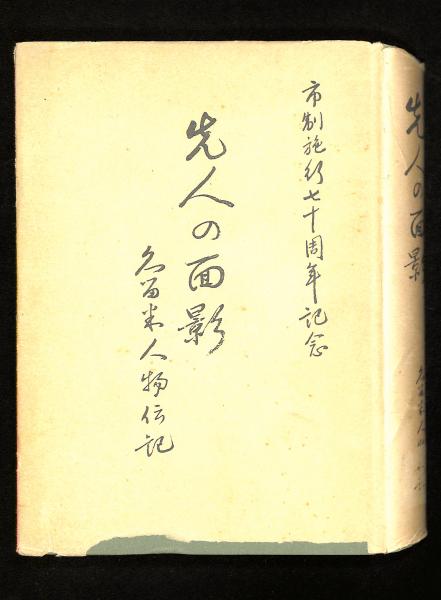 市制施行七十周年記念
先人の面影
久留米人物伝記
先人の面影
久留米人物伝記